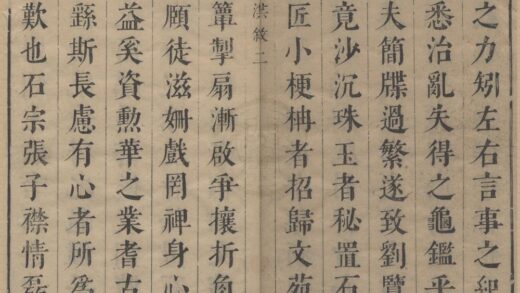 之力矧左右言事之紀
悉治亂失得之龜鑑乎
夫簡牒過繁遂致劉覽
竟沙沉珠玉者秘置石
匠小梗枏者招歸文苑
敘二
簟掣扇漸啟爭攘折角
願徒滋姍戲罔裨身心
益奚資勳華之業耆古
繇斯長慮有心者所為
歎也石宗張子襟情磊